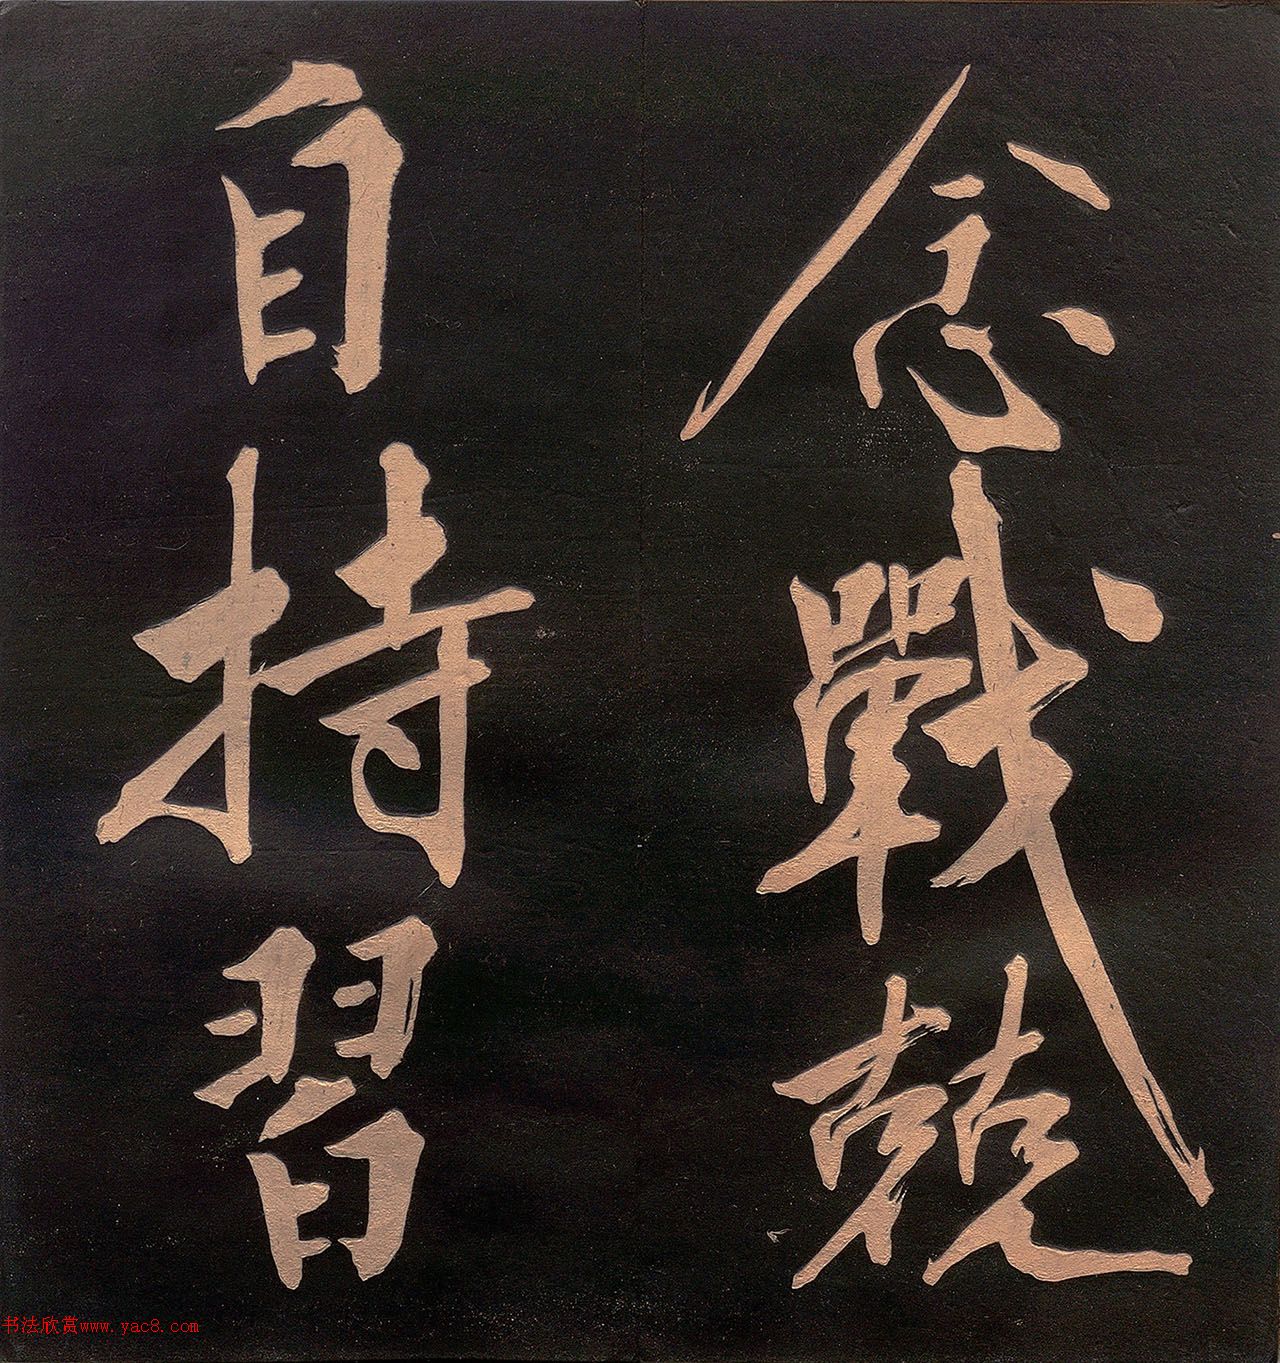 念戰兢
自持習
书法欣赏www.yac8.com